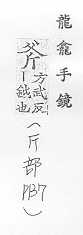 龍龕手鏡
㸙
方武反
丨鉞也
(斤部
P137)